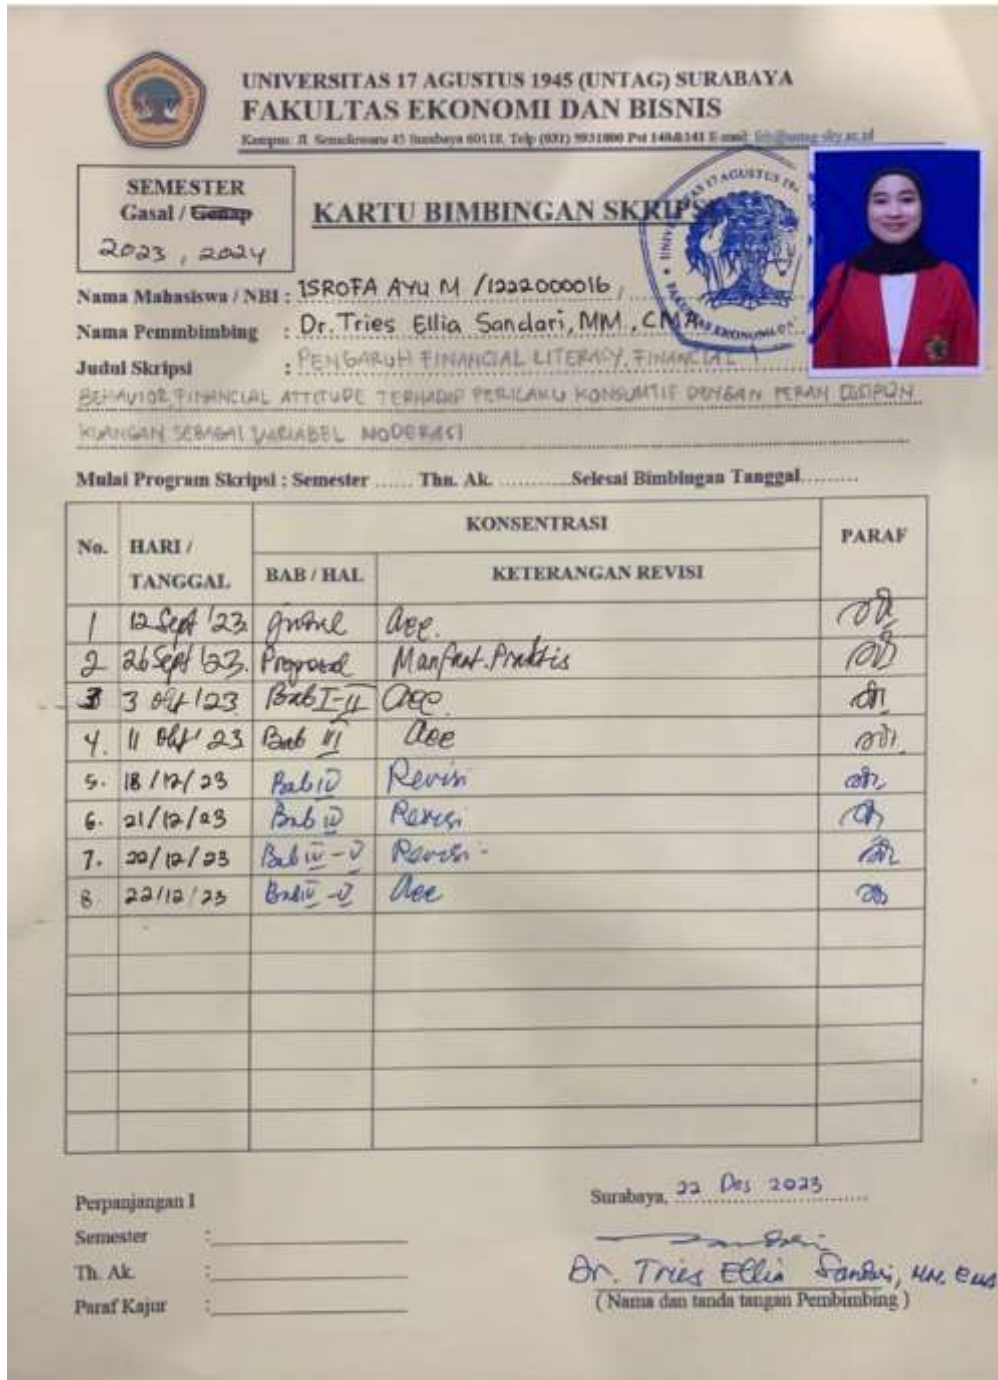 UNIVERSITAS 17 AGUSTUS 1945 (UNTAG) SURABAYA
FAKULTAS EKONOMI DAN BISNIS
Kampus: Jl. Semolowaru 45 Surabaya 60118, Telp (031) 5931800 Pst 140&141 E-mail:
SEMESTER
Gasal / Genap
2023, 2024
KARTU BIMBINGAN SKRIPSI
Nama Mahasiswa / NBI : ISROFA AYU M /1222000016
Nama Pemmbimbing : Dr. Tries Ellia Sandari, MM., CMA
Judul Skripsi : PENGARUH FINANCIAL LITERACY, FINANCIAL
BEHAVIOR, FINANCIAL ATTITUDE TERHADAP PERILAKU KONSUMTIF DENGAN PERAN DISIPLIN
KUANGAN SEBAGAI VARIABEL MODERASI
Mulai Program Skripsi : Semester ...... Thn. Ak. ...........Selesai Bimbingan Tanggal.........
No. HARI / TANGGAL KONSENTRASI PARAF
BAB / HAL KETERANGAN REVISI
1 12 Sept '23 acc.
2 26 Sept '23. Proposal Manfaat Praktis
3 3 Okt '23 Bab I-II acc
4. 11 Okt '23 Bab III acc
5. 18/12/23 Bab IV Revisi
6. 21/12/23 Bab IV Revisi
7. 22/12/23 Bab IV - V Revisi
8 22/12/23 Bab IV - V acc
Perpanjangan I
Semester :
Th. Ak. :
Paraf Kajur :
Surabaya, 22 Des 2023
Dr. Tries Ellia Sandari, MM. CMA
( Nama dan tanda tangan Pembimbing )